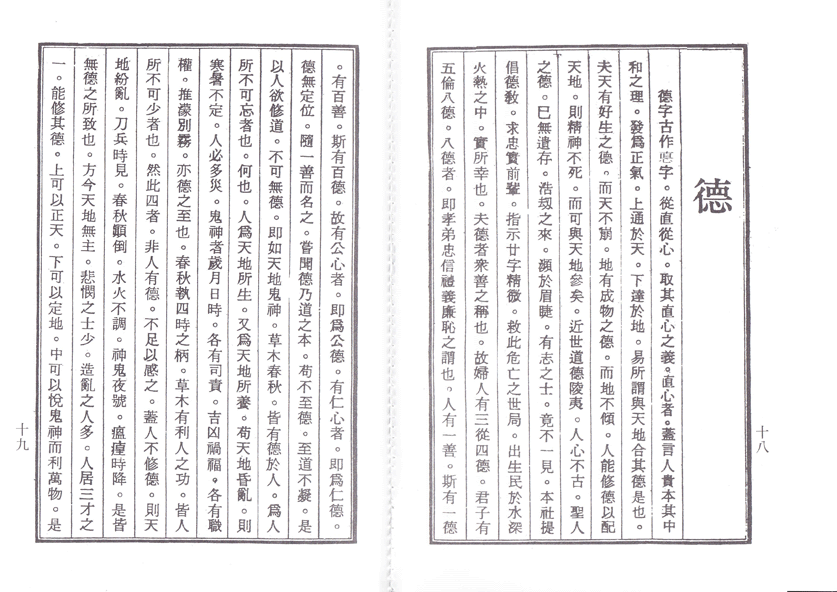 德
德字古作悳字。從直從心。取其直心之義。直心者。蓋言人貴本其中
和之理。發爲正氣。上通於天。下達於地。易所謂與天地合其德是也。
夫天有好生之德。而天不崩。地有成物之德。而地不傾。人能修德以配
天地。則精神不死。而可與天地參矣。近世道德陵夷。人心不古。聖人
之德。已無遺存。浩刼之來。瀕於眉睫。有志之士。竟不一見。本社提
倡德敎。求忠實前輩。指示廿字精微。救此危亡之世局。出生民於水深
火熱之中。實所幸也。夫德者衆善之稱也。故婦人有三從四德。君子有
五倫八德。八德者。即孝弟忠信禮義廉恥之謂也。人有一善。斯有一德
十八
。有百善。斯有百德。故有公心者。即爲公德。有仁心者。即爲仁德。
德無定位。隨一善而名之。嘗聞德乃道之本。苟不至德。至道不凝。是
以人欲修道。不可無德。即如天地鬼神。草木春秋。皆有德於人。爲人
所不可忘者也。何也。人爲天地所生。又爲天地所養。苟天地昏亂。則
寒暑不定。人必多災。鬼神者歲月日時。各有司責。吉凶禍福。各有職
權。推濛別霧。亦德之至也。春秋執四時之柄。草木有利人之功。皆人
所不可少者也。然此四者。非人有德。不足以感之。蓋人不修德。則天
地紛亂。刀兵時見。春秋顚倒。水火不調。神鬼夜號。瘟𤺄時降。是皆
無德之所致也。方今天地無主。悲憫之士少。造亂之人多。人居三才之
一。能修其德。上可以正天。下可以定地。中可以悅鬼神而利萬物。是
十九